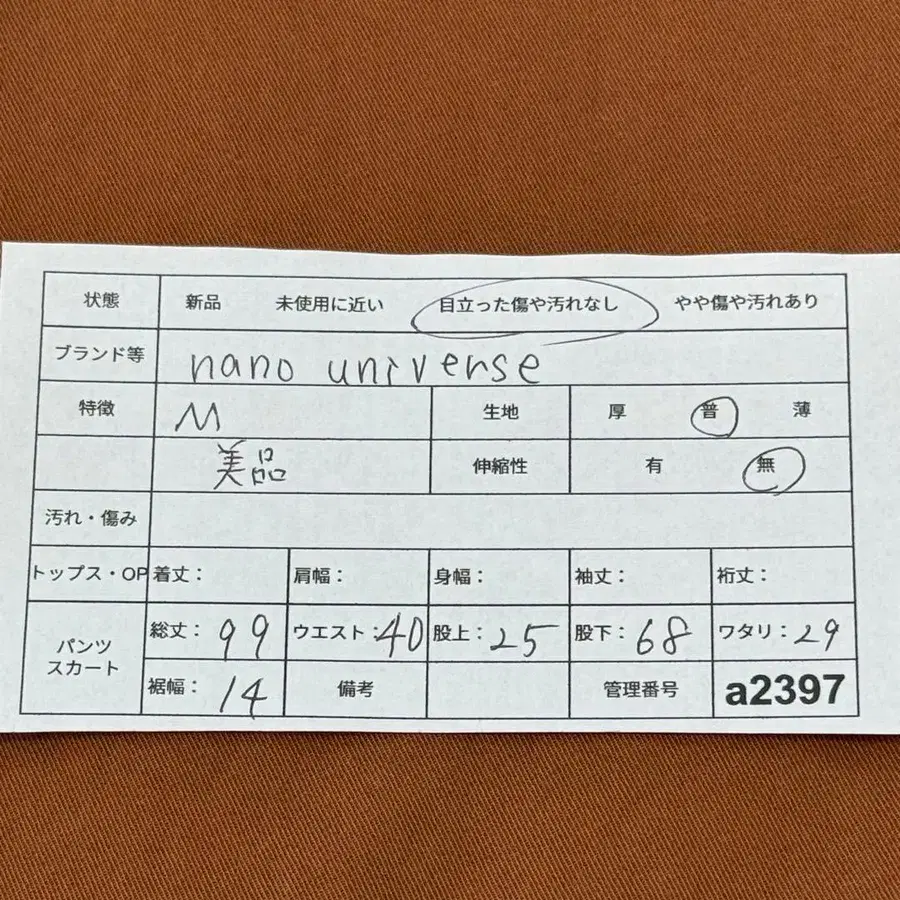 状態 新品 未使用に近い 目立った傷や汚れなし やや傷や汚れあり
ブランド等 nano universe
特徴 M 生地 厚 普 薄
美品 伸縮性 有 無
汚れ・傷み
トップス・OP 着丈： 肩幅： 身幅： 袖丈： 裄丈：
パンツ スカート 総丈：99 ウエスト：40 股上：25 股下：68 ワタリ：29
裾幅：14 備考 管理番号 a2397